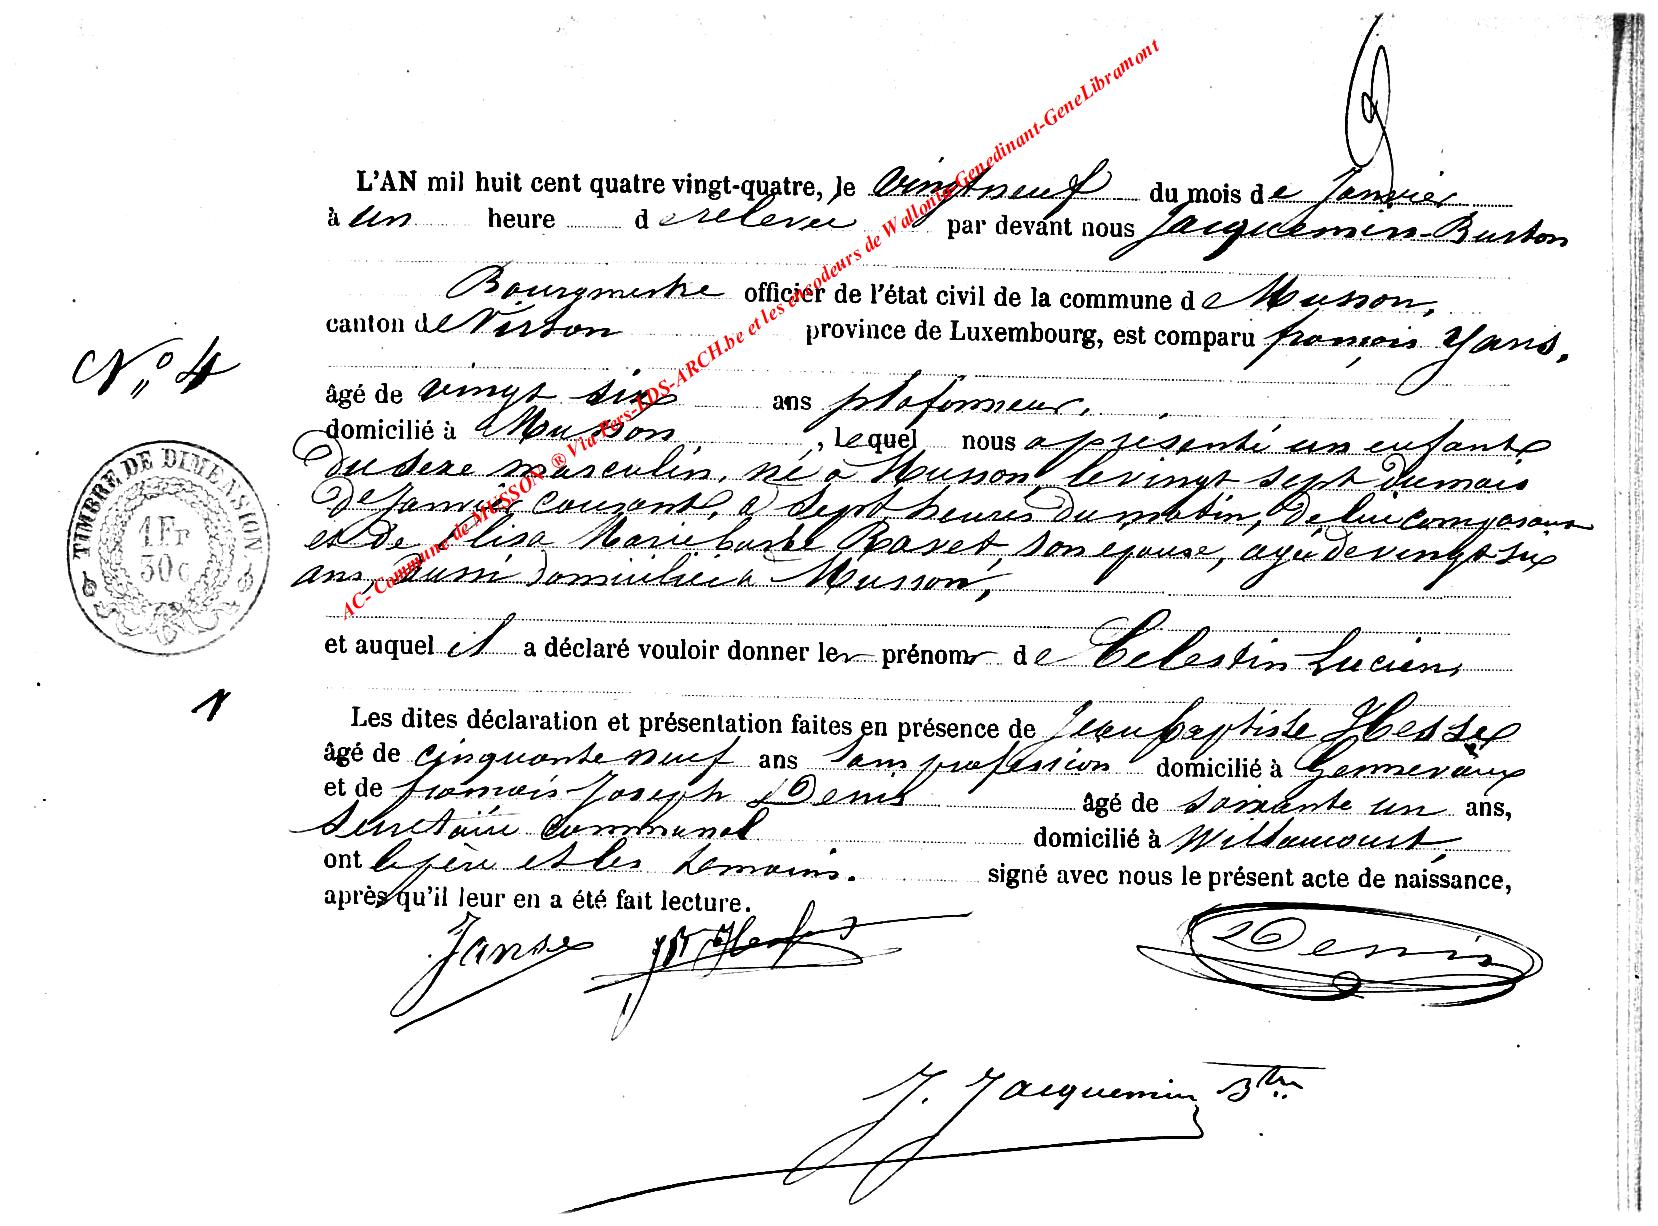 L'AN mil huit cent quatre vingt-quatre, le vingt neuf du mois de Janvier
à un heure de relevée par devant nous Jacquemin-Burton
Bourgmestre officier de l'état civil de la commune de Musson,
canton de Virton province de Luxembourg, est comparu françois Yans,
N° 4
âgé de vingt six ans plafonneur,
domicilié à Musson, lequel nous a présenté un enfant
du sexe masculin, né à Musson, le vingt sept du mois
de Janvier courant, à sept heures du matin, de lui comparant
et de Elisa Marie barbe Ravet, son épouse, agée de vingt six
ans, aussi domiciliée à Musson,
TIMBRE DE DIMENSION
1 Fr
30 c
et auquel il a déclaré vouloir donner les prénoms de Célestin Lucien,
1
Les dites déclaration et présentation faites en présence de Jean baptiste Hesse
âgé de cinquante neuf ans sans profession domicilié à Gennevaux
et de françois Joseph Denis âgé de soixante un ans,
Secrétaire communal domicilié à Willancourt,
ont le père et les témoins. signé avec nous le présent acte de naissance,
après qu'il leur en a été fait lecture.
Janse JBt Hesse Denis
J. Jacquemin Btn
AC- Commune de MUSSON ® Via Pers-EDS-ARCH.be et les encodeurs de Wallonia-Genedinant-GeneLibramont